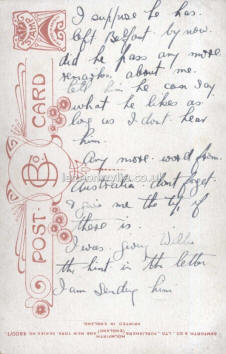 I suppose he has
left Belfast by now.
did he pass any more
remarks about me.
tell him he can say
what he likes as
long as I dont hear
him.
Any more word from
Australia. dont forget
& give me the tip if
there is.
I was giving Willie
the hint in the letter
I am sending him
POST CARD
BAMFORTH & CO., LTD., PUBLISHERS
HOLMFIRTH (ENGLAND) AND NEW YORK. SERIES NO.
PRINTED IN ENGLAND